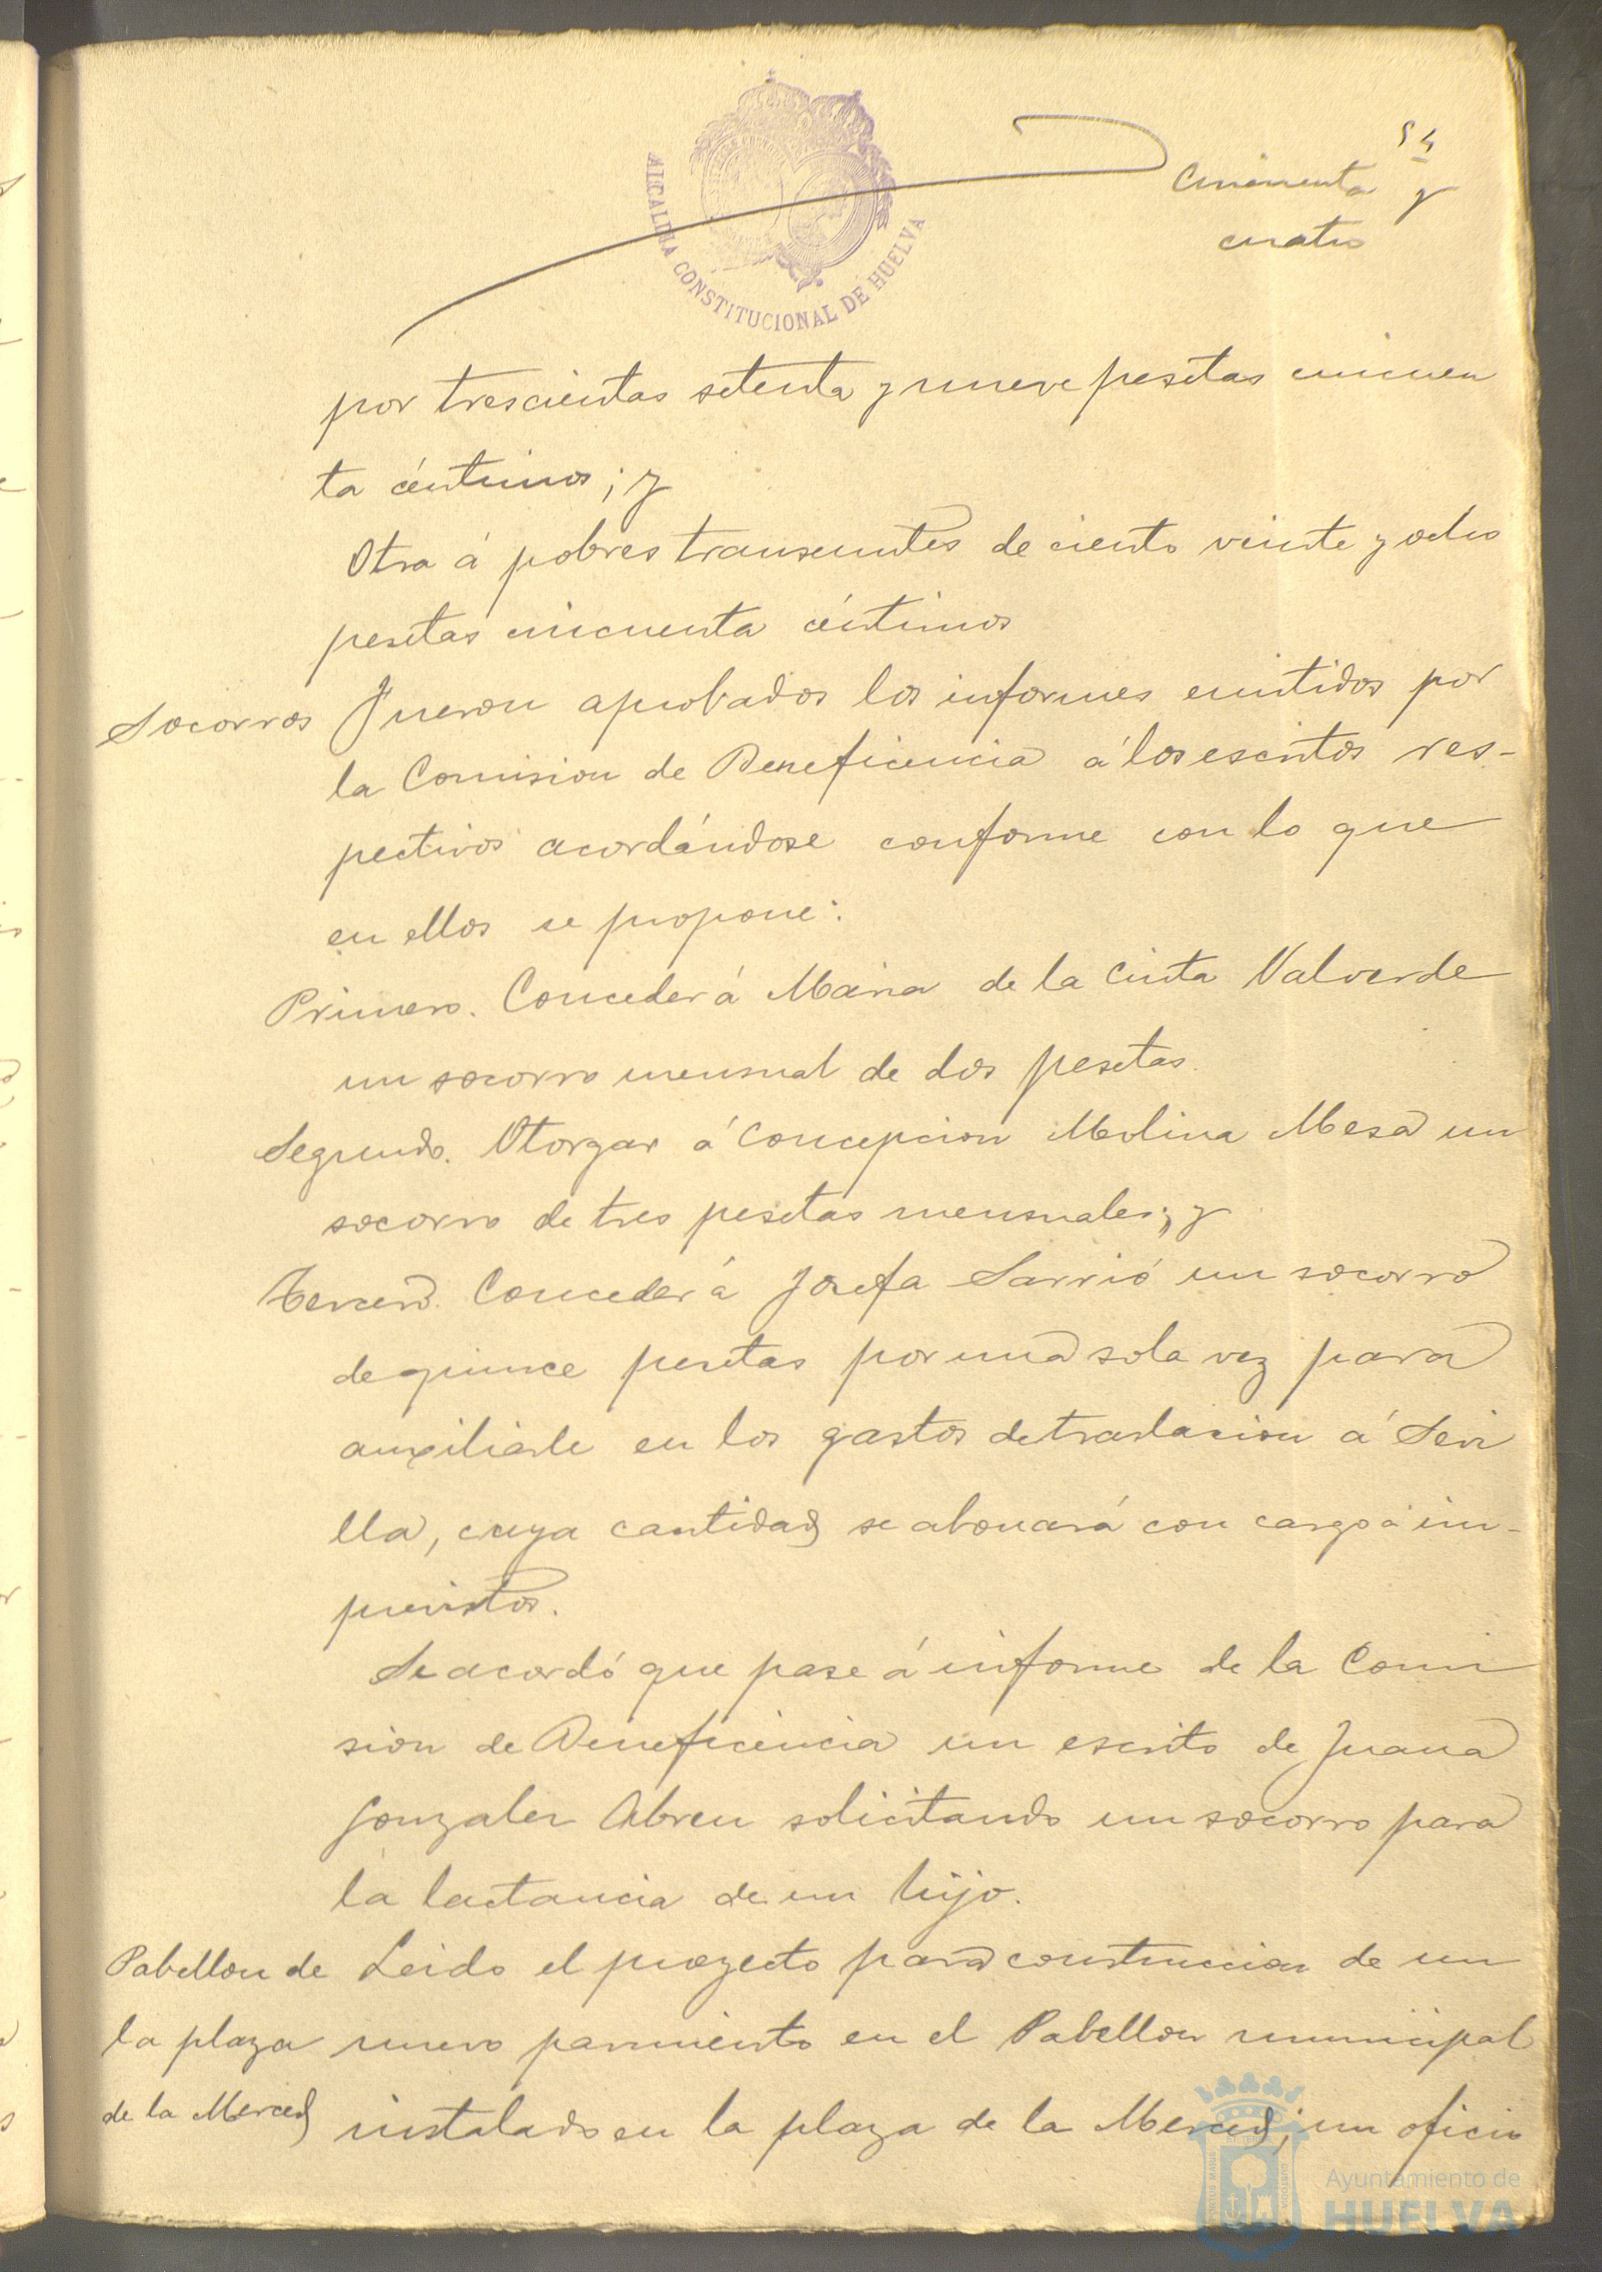 54
Cincuenta y
cuatro
ALCALDIA CONSTITUCIONAL DE HUELVA
por trescientas setenta y nueve pesetas cincuen
ta céntimos; y
Otra á pobres transeuntes de ciento veinte y ocho
pesetas cincuenta céntimos
Socorros Fueron aprobados los informes emitidos por
la Comision de Beneficencia á los escritos res-
pectivos acordándose conforme con lo que
en ellos se propone:
Primero. Conceder á Maria de la Cinta Valverde
un socorro mensual de dos pesetas.
Segundo. Otorgar á Concepcion Molina Mesa un
socorro de tres pesetas mensuales; y
Tercero. Conceder á Josefa Sarrió un socorro
de quince pesetas por una sola vez para
auxiliarle en los gastos de traslacion á Sevi
lla, cuya cantidad se abonará con cargo á im-
previstos.
Se acordó que pase á informe de la Comi
sion de Beneficencia un escrito de Juana
Gonzalez Abreu solicitando un socorro para
la lactancia de un hijo.
Pabellon de Leido el proyecto para construccion de un
la plaza nuevo pavimiento en el Pabellon municipal
de la Merced instalado en la plaza de la Merced; un oficio
Ayuntamiento de
HUELVA